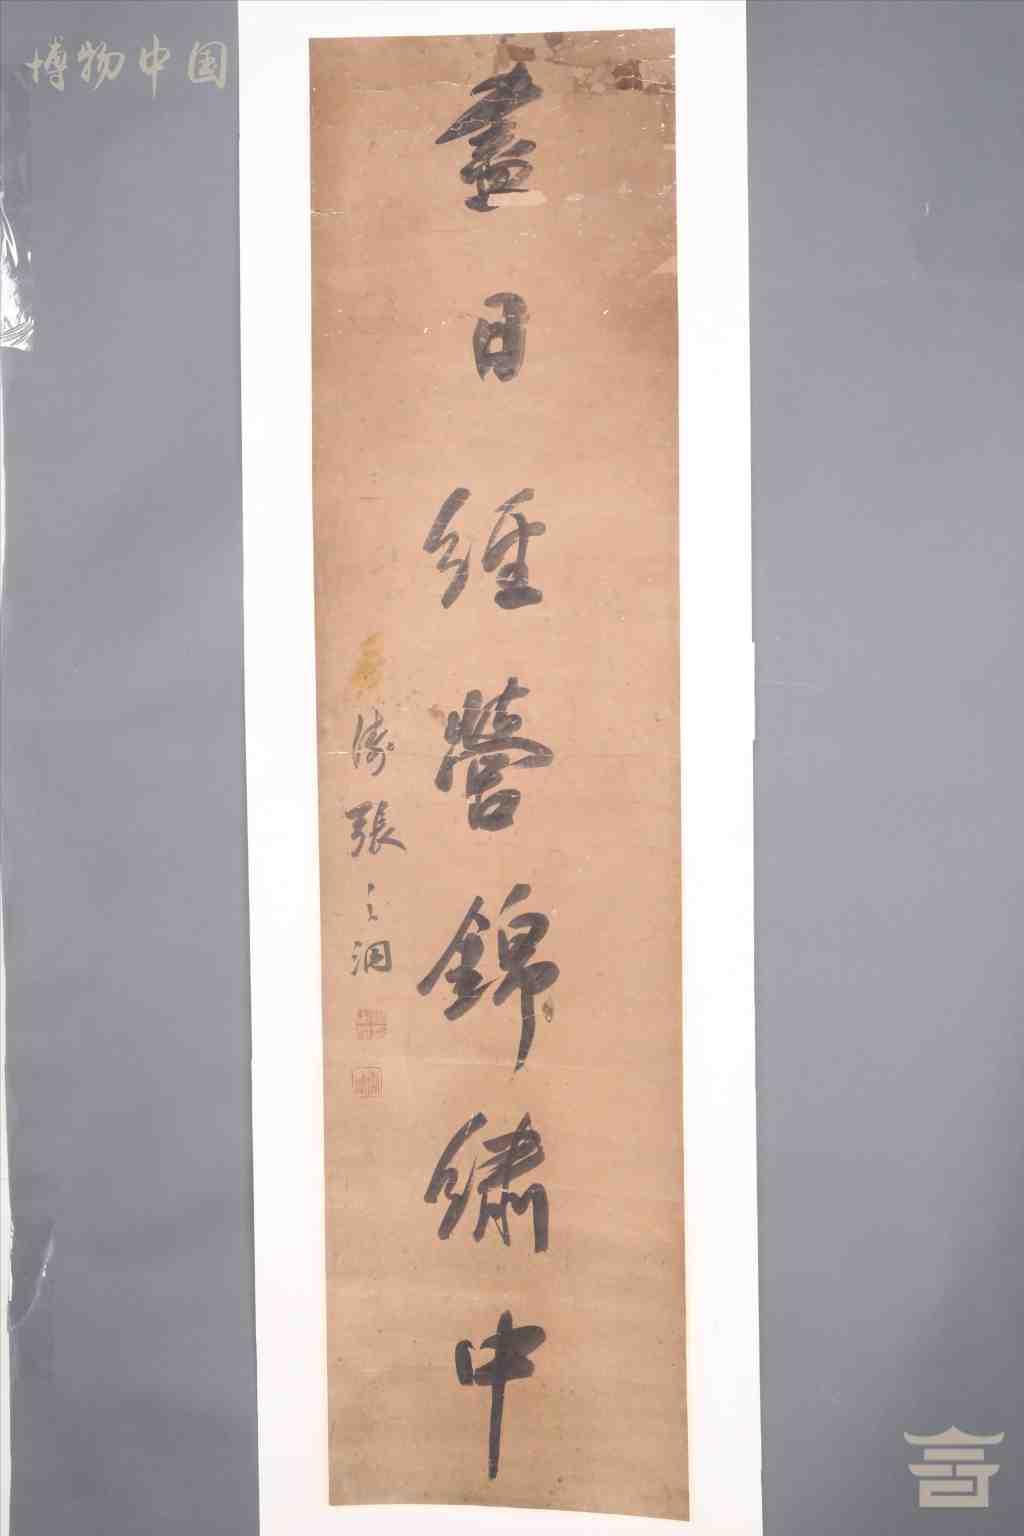 博物中国
盡日經營錦繡中
濤張之洞